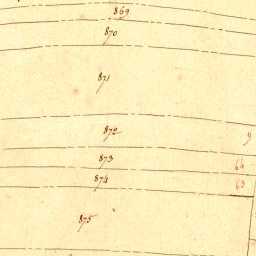 869
870
871
872
9
873
64
874
63
875